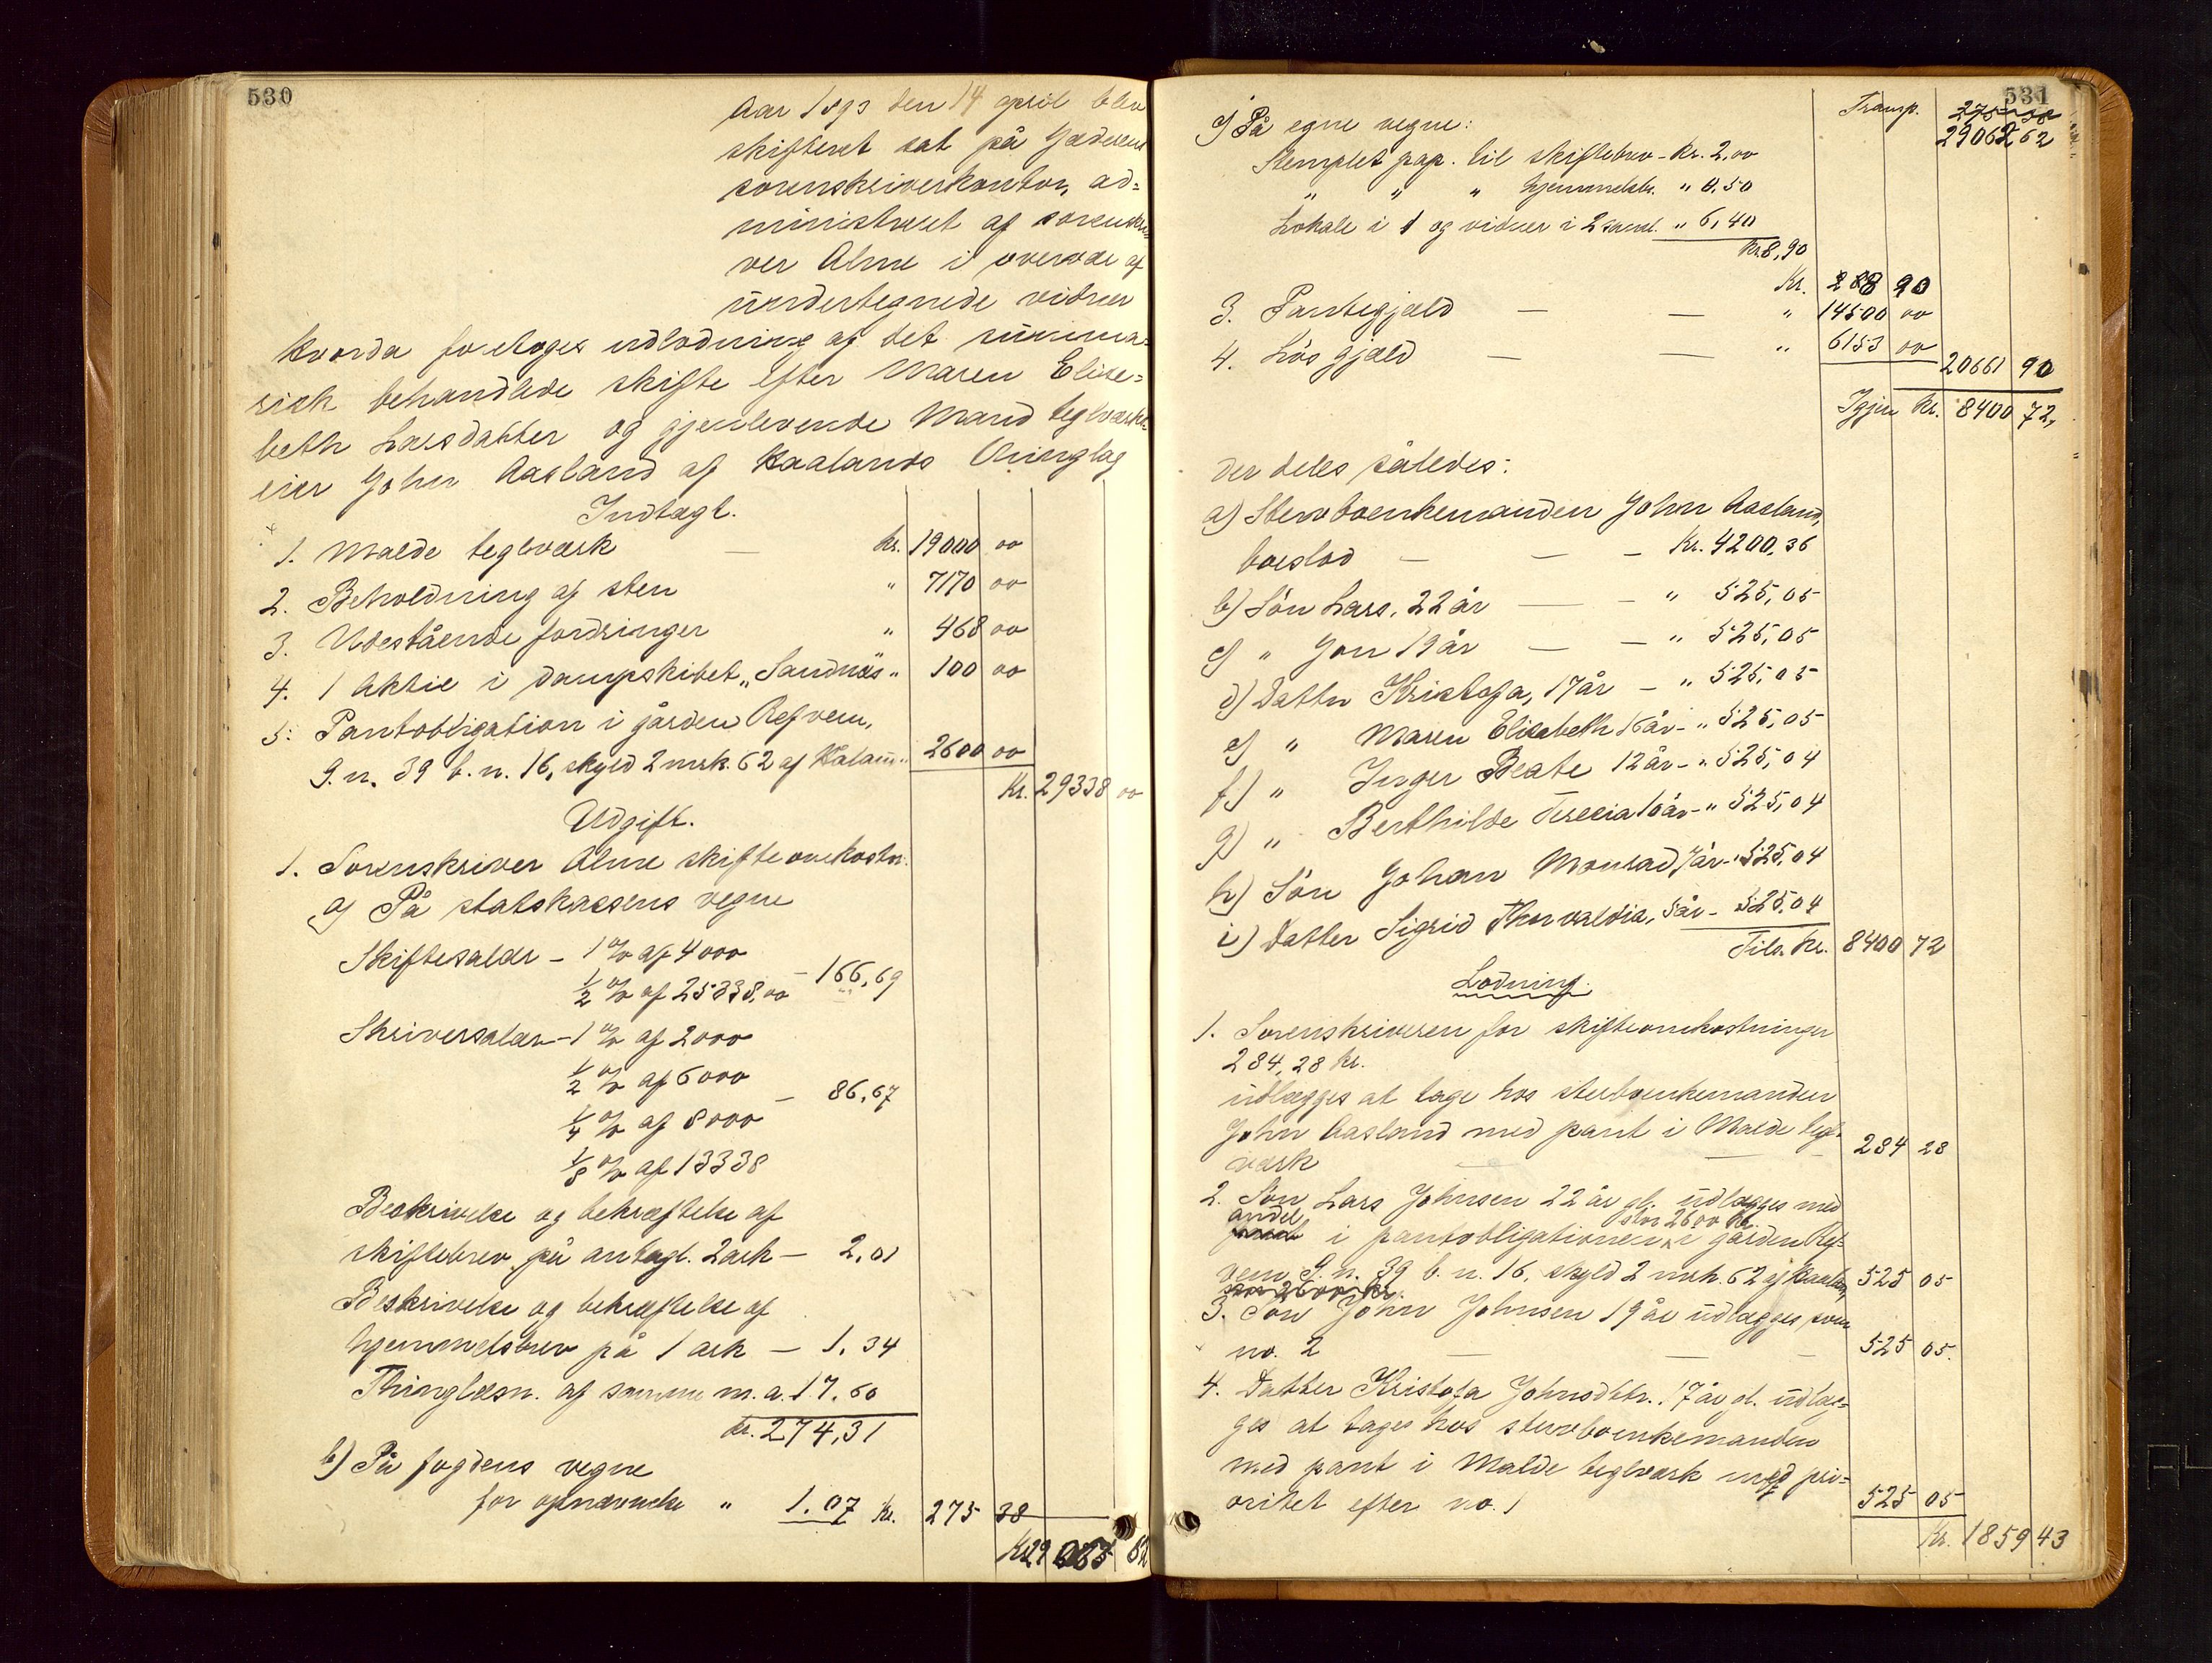 530
Aar 1893 den 14 april blev
skifteret sat på Jæderens
sorenskriverkontor, ad=
ministreret af sorenskri=
ver Alme i overvær af
undertegnede vidner
Hvorda foretoges udlodning af det summa=
risk behandlede skifte efter Maren Elise=
beth Larsdatter og gjenlevende Mand teglværks=
eier John Aasland af Haalands thinglag
Indtægt.
1. Malde teglværk — Kr. 19000 00
2. Beholdning af sten " 7170 00
3. Udestående fordringer " 468 00
4. 1 Aktie i dampskibet „Sandnæs" 100 00
5. Pantobligation i gården Refvem,
G.n. 39 b.n. 16, skyld 2 mrk. 62 af Håland " 2600 00
Kr. 29338 00
Udgift.
1. Sorenskriver Alme skifteomkostn.
a) På statskassens vegne
Skiftesalær – 1 % af 4000
½ % af 25338,00 – 166,69
Skriversalær – 1 % af 2000
½ % af 6000
– 86,67
¼ % af 8000
⅛ % af 13338
Beskrivelse og bekræftelse af
skiftebrev på antagl. 2 ark – 2,01
Beskrivelse og bekræftelse af
hjemmelsbrev på 1 ark – 1.34
Thinglæsn. af samme m.a. 17.60
Kr. 274,31
b) På fogdens vegne
for opnævnelse " 1.07 Kr. 275 38
Kr. 29 062 62
531
Transp. 275 38
29062 62
c) På egne vegne:
Stemplet pap. til skiftebrev – Kr. 2,00
" " " hjemmelsbr. " 0,50
Lokale i 1 og vidner i 2 saml. " 6,40
Kr. 8,90
Kr. 8 90
3. Pantegjæld — — " 14500 00
4. Løs gjæld — — " 6153 00
20661 90
Igjen Kr. 8400 72,
der deles således:
a) Stervboenkemanden John Aasland,
boeslod — — – Kr. 4200,36
b) Søn Lars, 22 år — – " 525,05
c) " Jon 19 år — – " 525,05
d) Datter Kristofa, 17 år – " 525,05
e) " Maren Elisebeth 16 år – " 525,05
f) " Inger Beate 12 år – " 525,04
g) " Berthilde Tereseia 10 år – " 525,04
h) Søn Johan Monrad 7 år – " 525,04
i) Datter Sigrid Thorvaldia, 5 år – 525,04
Tils. Kr. 8400 72
Lodning.
1. Sorenskriveren for skifteomkostninger
284,28 kr.
udlægges at tage hos sterboenkemanden
John Aasland med pant i Malde tegl=
værk — — – 284 28
2. Søn Lars Johnsen 22 år gl. udlægges med
andel stor 2600 kr.
pant i pantobligationen i gården Ref=
vem G.n. 39 b.n. 16, skyld 2 mrk. 62 af Haaland, 525 05
stor 2600 kr.
3. Søn John Johnsen 19 år udlægges som
no. 2 — — – 525 05.
4. Datter Kristofa Johnsdtr. 17 år gl. udlæg=
ges at tages hos stervboenkemanden
med pant i Malde teglværk med pri=
oritet efter no. 1 525 05
Kr. 1859 43